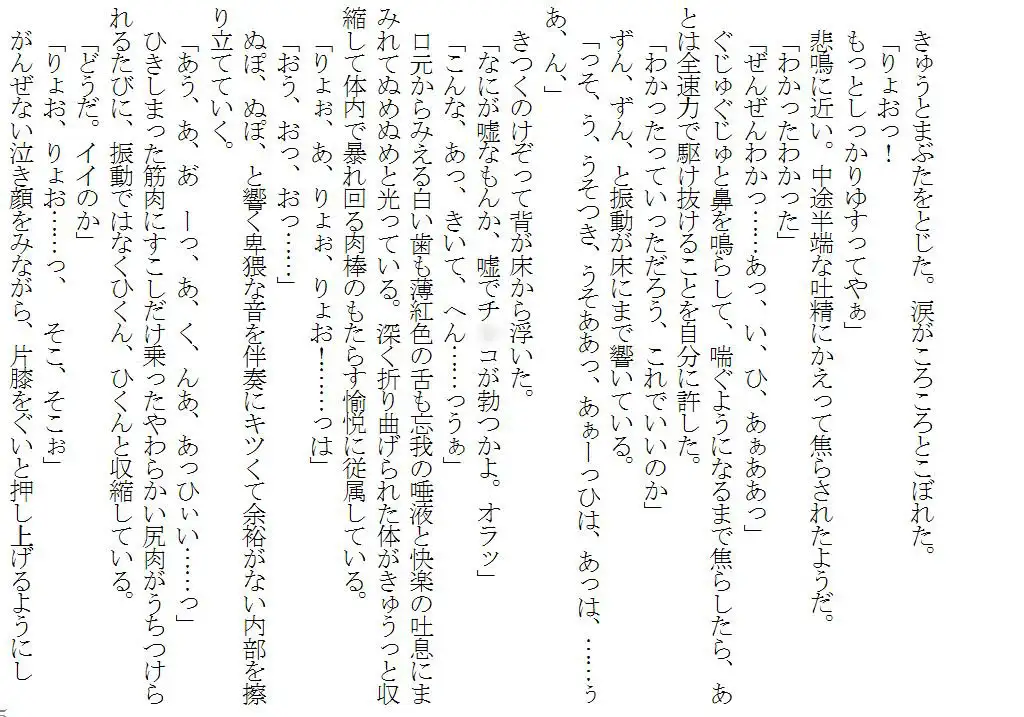 きゅうとまぶたをとじた。涙がころころとこぼれた。
「りょおっ！
もっとしっかりゆすってやぁ」
悲鳴に近い。中途半端な吐精にかえって焦らされたようだ。
「わかったわかった」
「ぜんぜんわかっ……あっ、い、ひ、あぁああっ」
ぐじゅぐじゅと鼻を鳴らして、喘ぐようになるまで焦らしたら、あ
とは全速力で駆け抜けることを自分に許した。
「わかったっていっただろう、これでいいのか」
ずん、ずん、と振動が床にまで響いている。
「っそ、う、うそつき、うそああっ、あぁーっひは、あっは、……ぅ
あ、ん、」
きつくのけぞって背が床から浮いた。
「なにが嘘なもんか、嘘でチ コが勃つかよ。オラッ」
「こんな、あっ、きいて、へん……っうぁ」
口元からみえる白い歯も薄紅色の舌も忘我の唾液と快楽の吐息にま
みれてぬめぬめと光っている。深く折り曲げられた体がきゅうっと収
縮して体内で暴れ回る肉棒のもたらす愉悦に従属している。
「りょぉ、あ、りょぉ、りょお！………っは」
「おう、おっ、おっ……」
ぬぽ、ぬぽ、と響く卑猥な音を伴奏にキツくて余裕がない内部を擦
り立てていく。
「あう、あ、あ゛ーっ、あ、く、んあ、あっひぃい……っ」
ひきしまった筋肉にすこしだけ乗ったやわらかい尻肉がうちつけら
れるたびに、振動ではなくひくん、ひくんと収縮している。
「どうだ。イイのか」
「りょお、りょお……っ、　そこ、そこぉ」
がんぜない泣き顔をみながら、片膝をぐいと押し上げるようにし